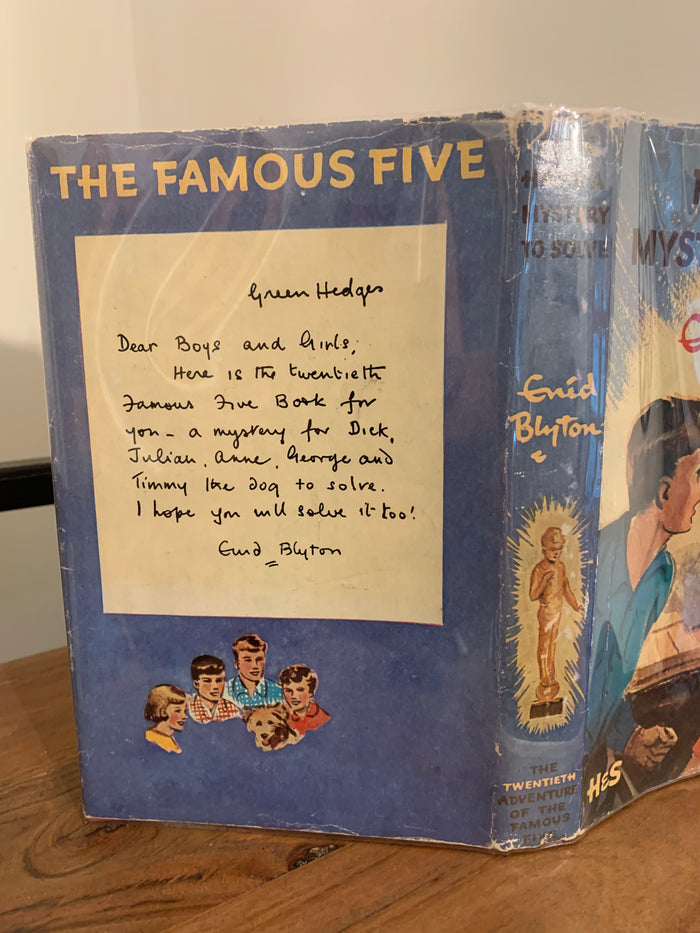 THE FAMOUS FIVE
Green Hedges
Dear Boys and Girls,
Here is the twentieth
Famous Five Book for
you – a mystery for Dick,
Julian, Anne, George and
Timmy the dog to solve.
I hope you will solve it too!
Enid Blyton
A
MYSTERY
TO SOLVE
Enid
Blyton
THE
TWENTIETH
ADVENTURE
OF THE
FAMOUS
FIVE
MYST
H&S